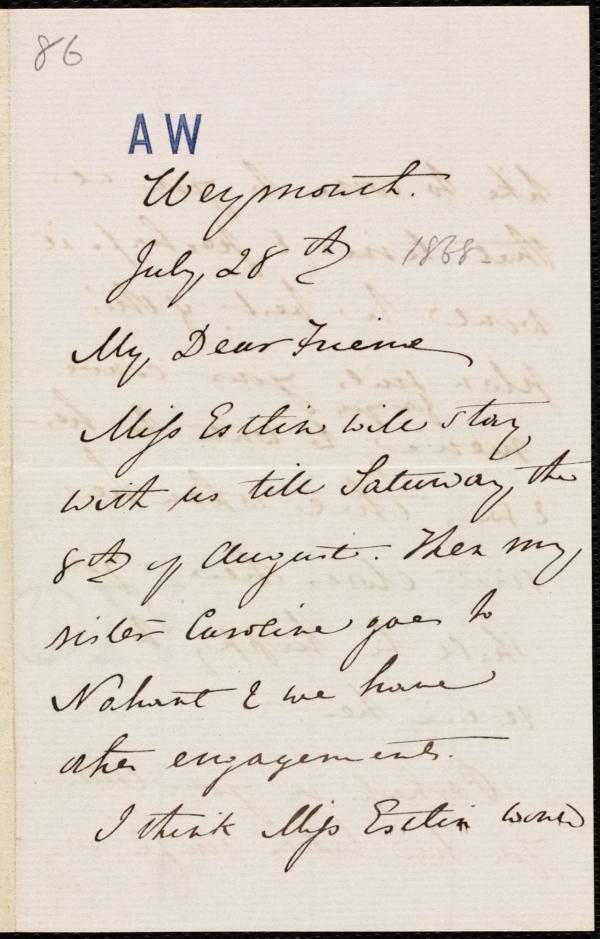 86
AW
Weymouth.
July, 28th 1868-
My Dear Friend
Miss Estlin will stay
with us till Saturday, the
8th of August. Then my
sister Caroline goes to
Nahant & we have
other engagements.
I think Miss Estlin would